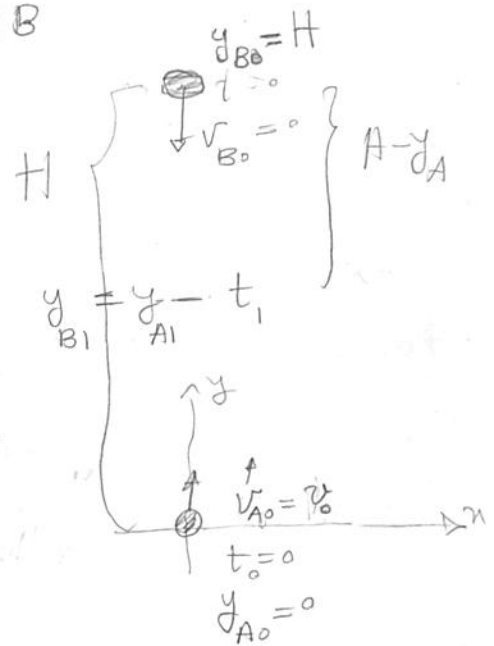 B
y_B0 = H
t = 0
v_B0 = 0
H
A - y_A
y_B1 = y_A1 - t_1
y
v_A0 = v_0
x
t_0 = 0
y_A0 = 0